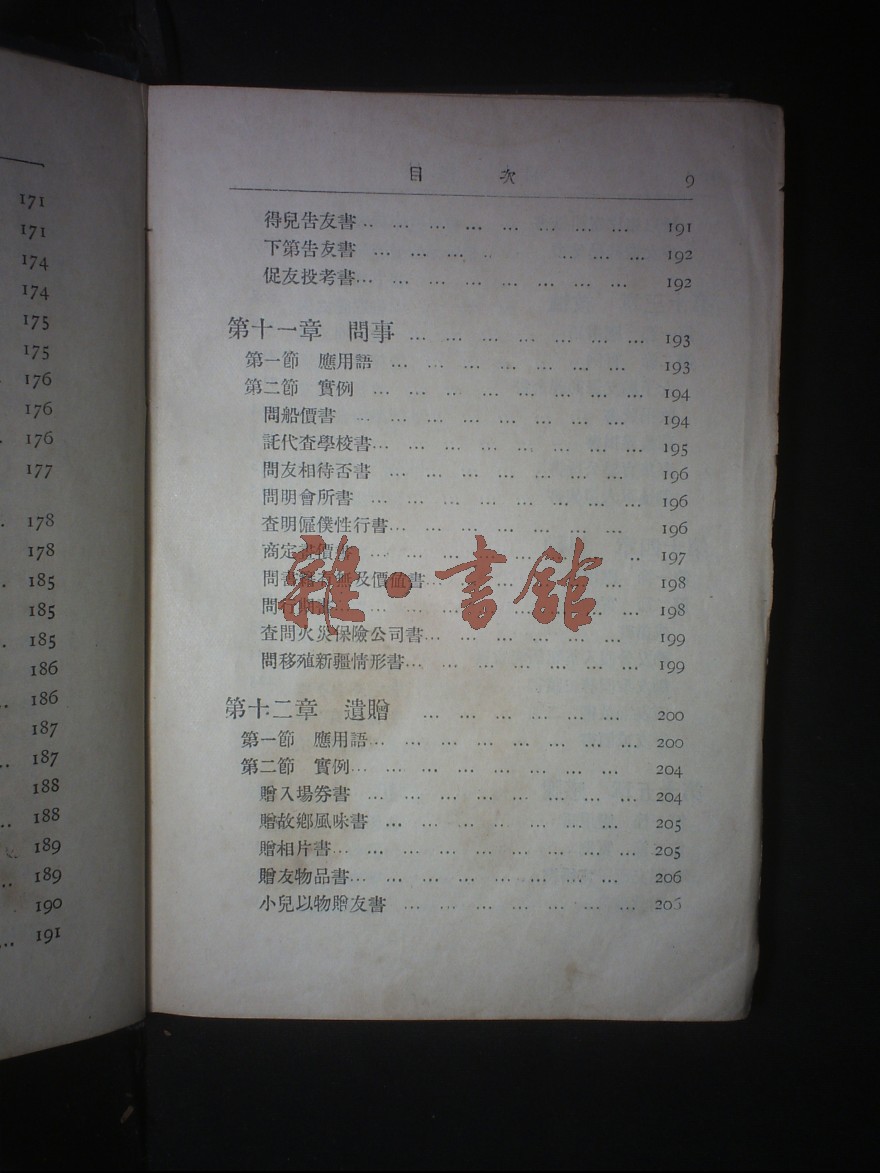 171
171
174
174
175
175
176
176
176
177
178
178
185
185
185
186
186
187
187
188
188
189
189
190
191
目 次 9
得兒告友書 191
下第告友書 192
促友投考書 192
第十一章 問事 193
第一節 應用語 193
第二節 實例 194
問船價書 194
託代查學校書 195
問友相待否書 196
問明會所書 196
查明僱僕性行書 196
商定 價 197
問書籍有無及價值書 198
問行期書 198
查問火災保險公司書 199
問移殖新疆情形書 199
雜·書館
第十二章 遺贈 200
第一節 應用語 200
第二節 實例 204
贈入場券書 204
贈故鄉風味書 205
贈相片書 205
贈友物品書 206
小兒以物贈友書 206